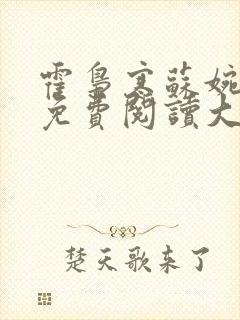 霍梟寒蘇婉
免費閱讀大
楚天歌来了